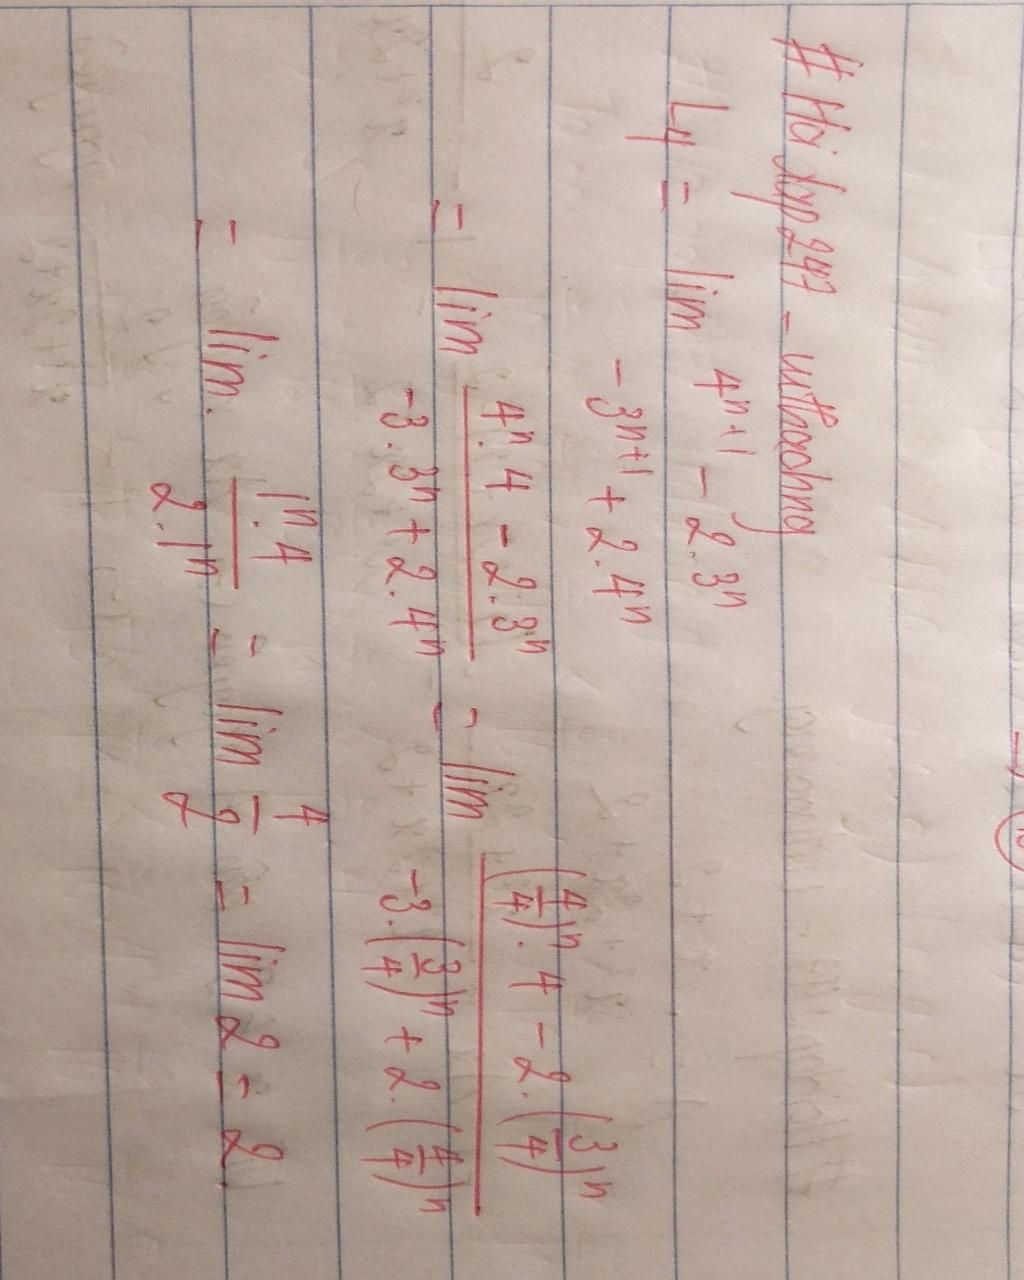 # Hỏi đáp 247 - mthachng
L4 = lim 4^{n+1} - 2.3^n / -3^{n+1} + 2.4^n
= lim 4^n.4 - 2.3^n / -3.3^n + 2.4^n = lim (4/4)^n.4 - 2.(3/4)^n / -3.(3/4)^n + 2.(4/4)^n
= lim. 1^n.4 / 2.1^n = lim 4/2 = lim 2 = 2.